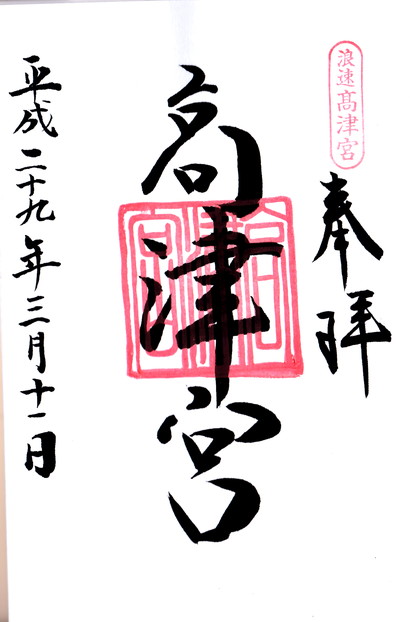 浪速高津宮
奉拝
高津宮
高津宮
平成二十九年三月十一日